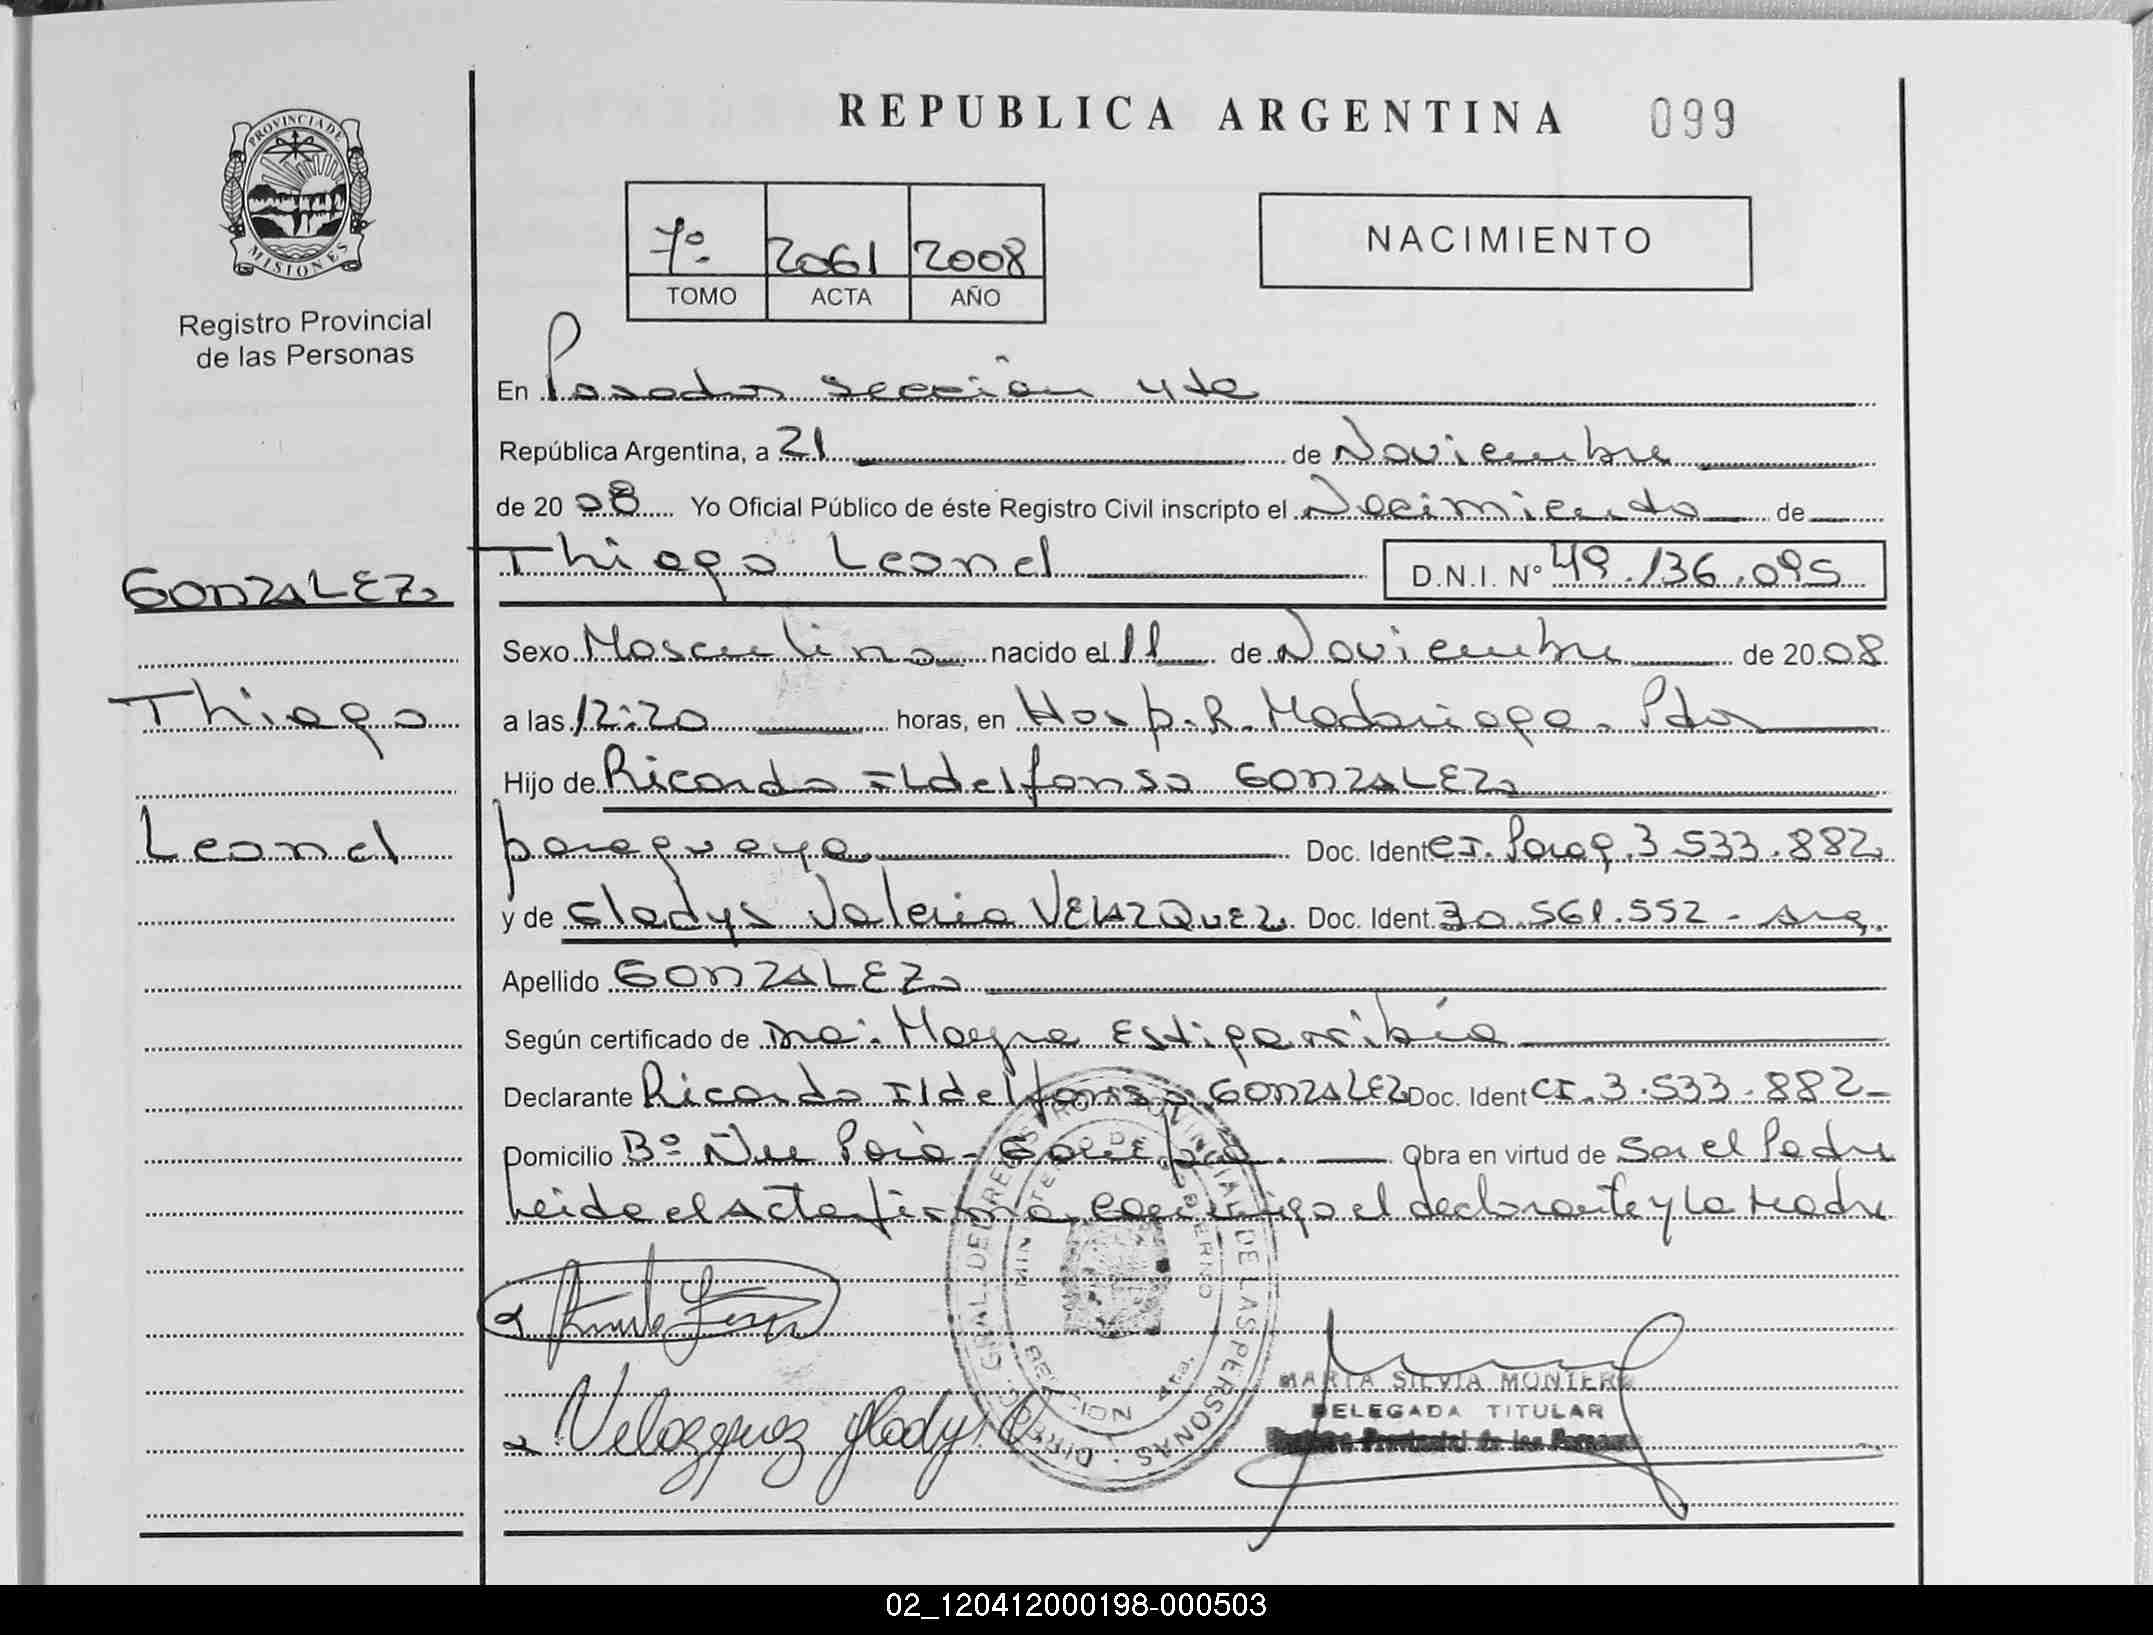 PROVINCIA DE
MISIONES
Registro Provincial
de las Personas
REPUBLICA ARGENTINA 099
7º 2061 2008
TOMO ACTA AÑO
NACIMIENTO
En Posadas sección 4ta
República Argentina, a 21 de Noviembre
de 2008 Yo Oficial Público de éste Registro Civil inscripto el Nacimiento de
GONZALEZ
Thiago Leonel D.N.I. Nº 49.136.095
Sexo Masculino nacido el 11 de Noviembre de 2008
Thiago
a las 12:20 horas, en Hosp. R. Madariaga. Pdas
Hijo de Ricardo Ildelfonso GONZALEZ
Leonel
paraguaya Doc. Ident CI. Parag. 3.533.882
y de Gladys Valeria VELAZQUEZ Doc. Ident. 30.561.552 - Arg.
Apellido GONZALEZ
Según certificado de Dra: Mayra Estigarribia
Declarante Ricardo Ildelfonso GONZALEZ Doc. Ident CI. 3.533.882
Domicilio Bº Ñu Porá - Garupá. Obra en virtud de Ser el Padre
Leida el Acta firma conmigo el declarante y la Madre
Velazquez Gladys
MARTA SILVIA MONIERO
DELEGADA TITULAR
Registro Provincial de las Personas
02_120412000198-000503